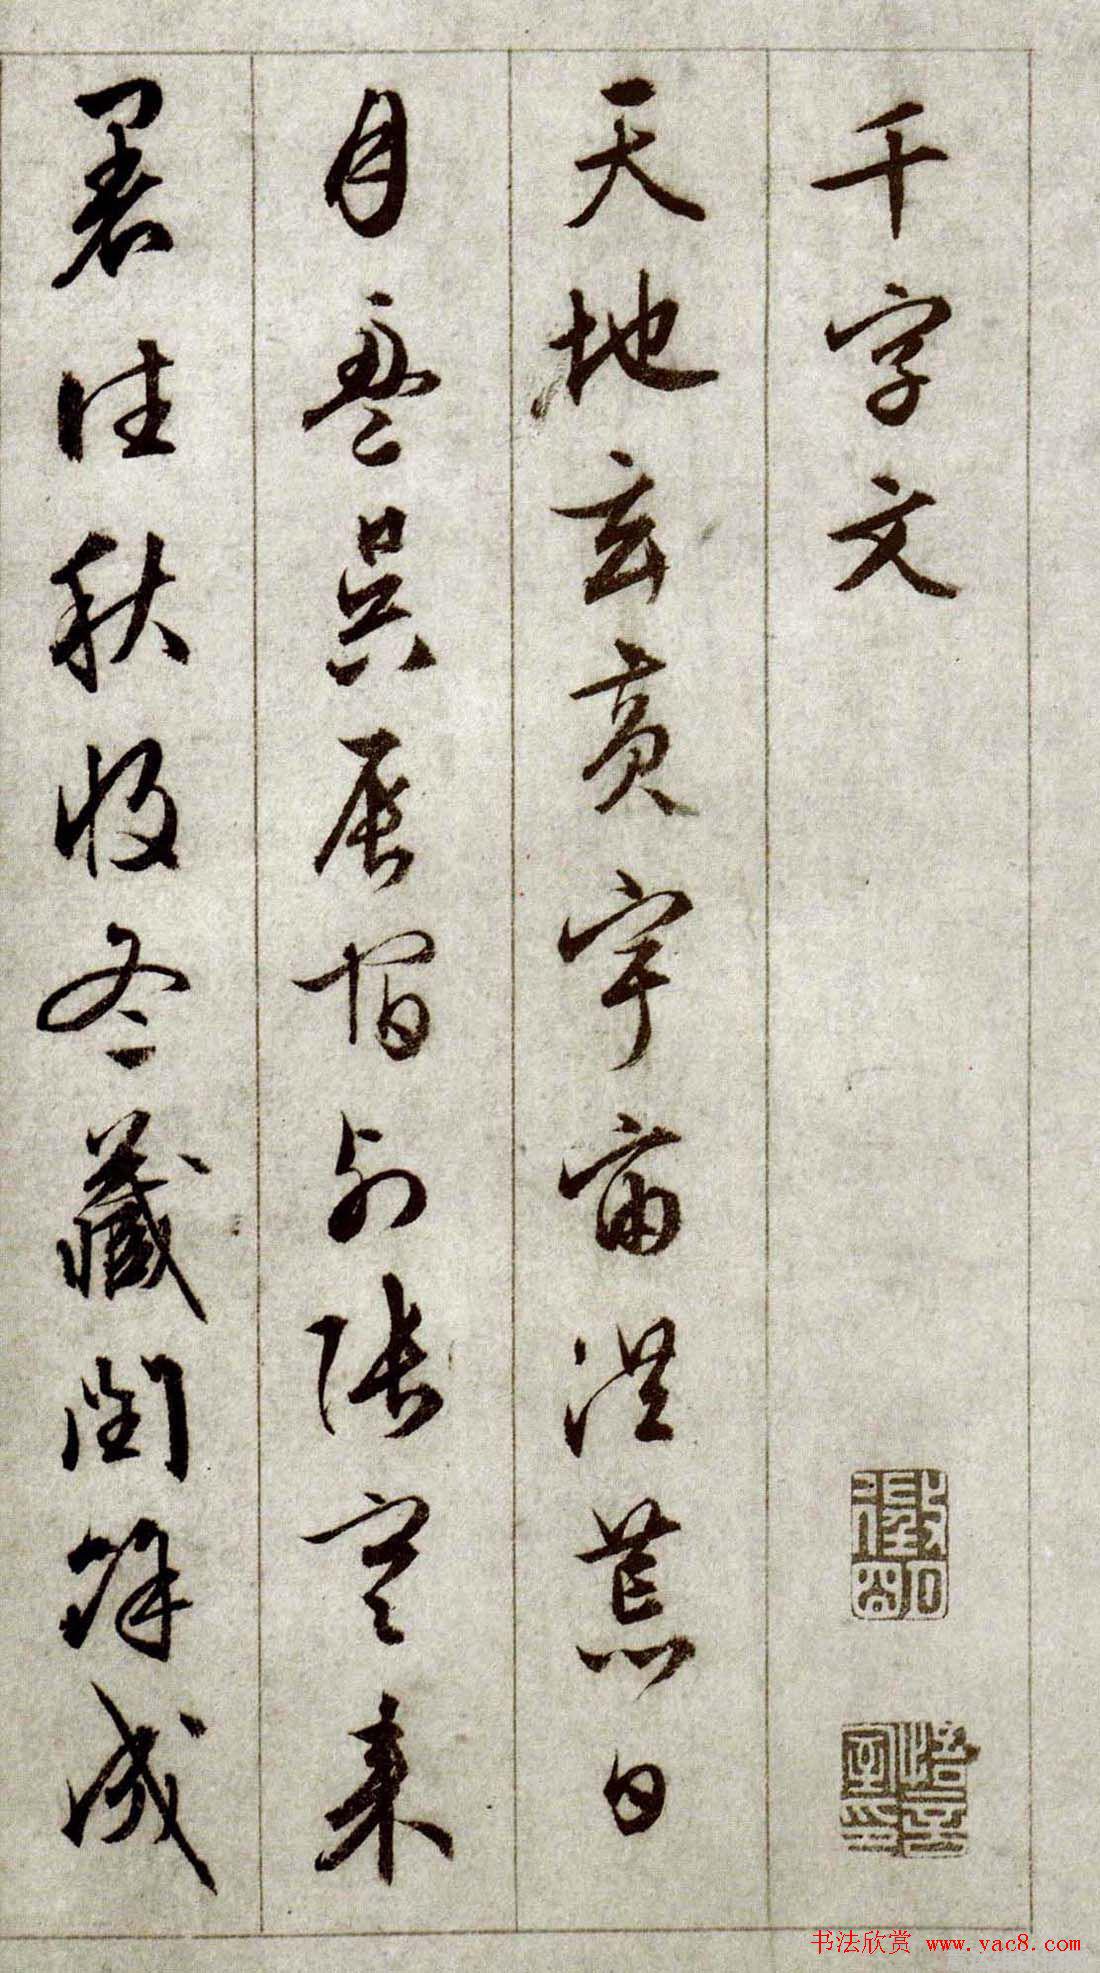 千字文
天地玄黄宇宙洪荒日
月盈昃辰宿列張寒来
暑往秋收冬藏閏餘成
悟言室印
书法欣赏 www.yac8.com